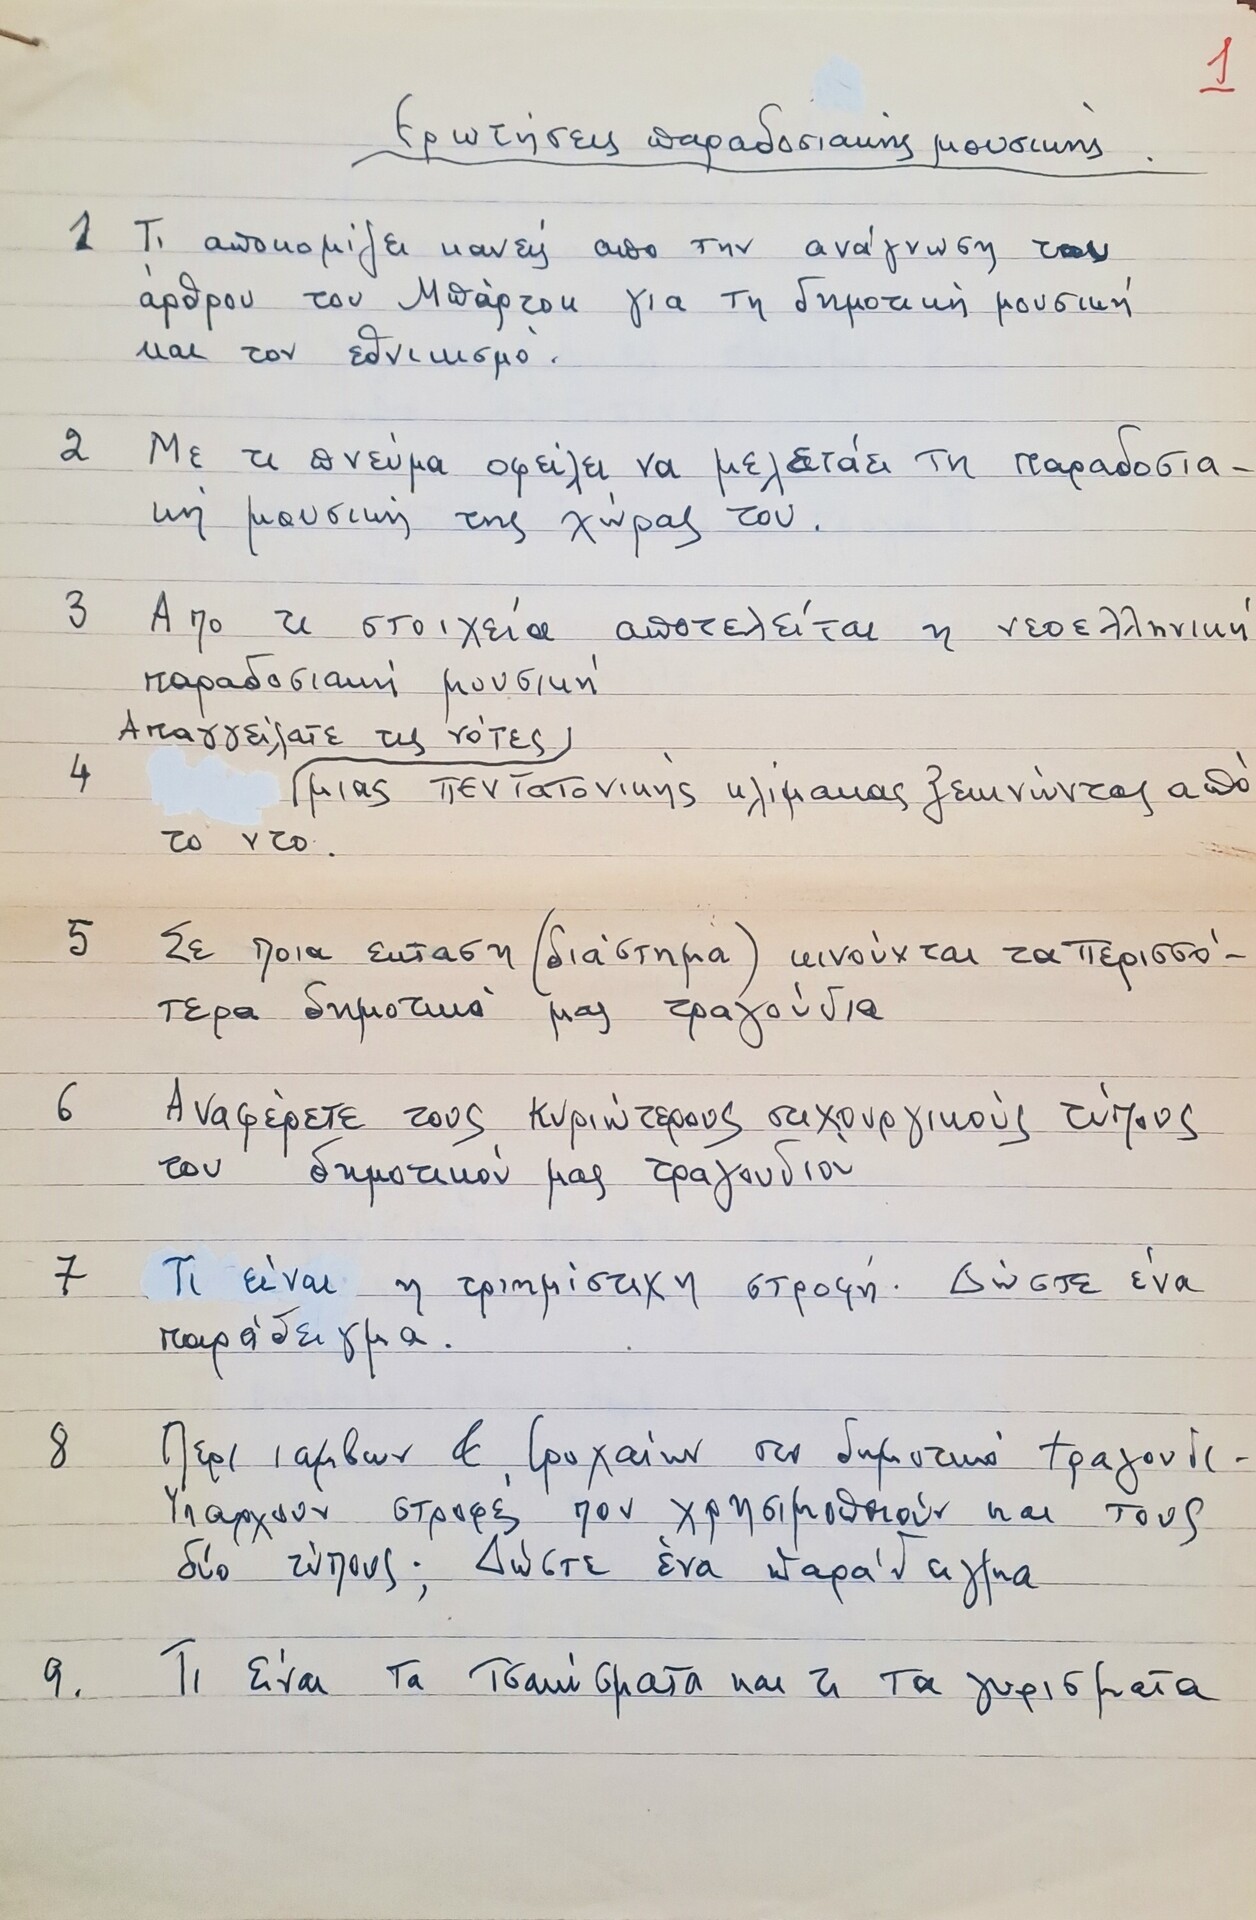 1
Ερωτήσεις παραδοσιακής μουσικής.
1 Τι αποκομίζει κανείς απο την ανάγνωση του
άρθρου του Μπάρτοκ για τη δημοτική μουσική
και τον εθνικισμό.
2 Με τι πνεύμα οφείλει να μελετάει τη παραδοσια-
κή μουσική της χώρας του.
3 Απο τι στοιχεία αποτελείται η νεοελληνική
παραδοσιακή μουσική
Απαγγείλατε τις νότες
4 μιας πεντατονικής κλίμακας ξεκινώντας από
το ντο.
5 Σε ποια εκταση (διάστημα) κινούνται τα περισσό-
τερα δημοτικά μας τραγούδια
6 Αναφέρετε τους κυριώτερους στιχουργικούς τύπους
του δημοτικού μας τραγουδιού
7 Τι είναι η τριημίστιχη στροφή. Δώστε ένα
παράδειγμα.
8 Περι ιαμβων & τροχαίων στο δημοτικό τραγούδι -
Υπαρχουν στροφές που χρησιμοποιούν και τους
δύο τύπους; Δώστε ένα παράδειγμα
9. Τι είναι τα τσακίσματα και τι τα γυρισματα